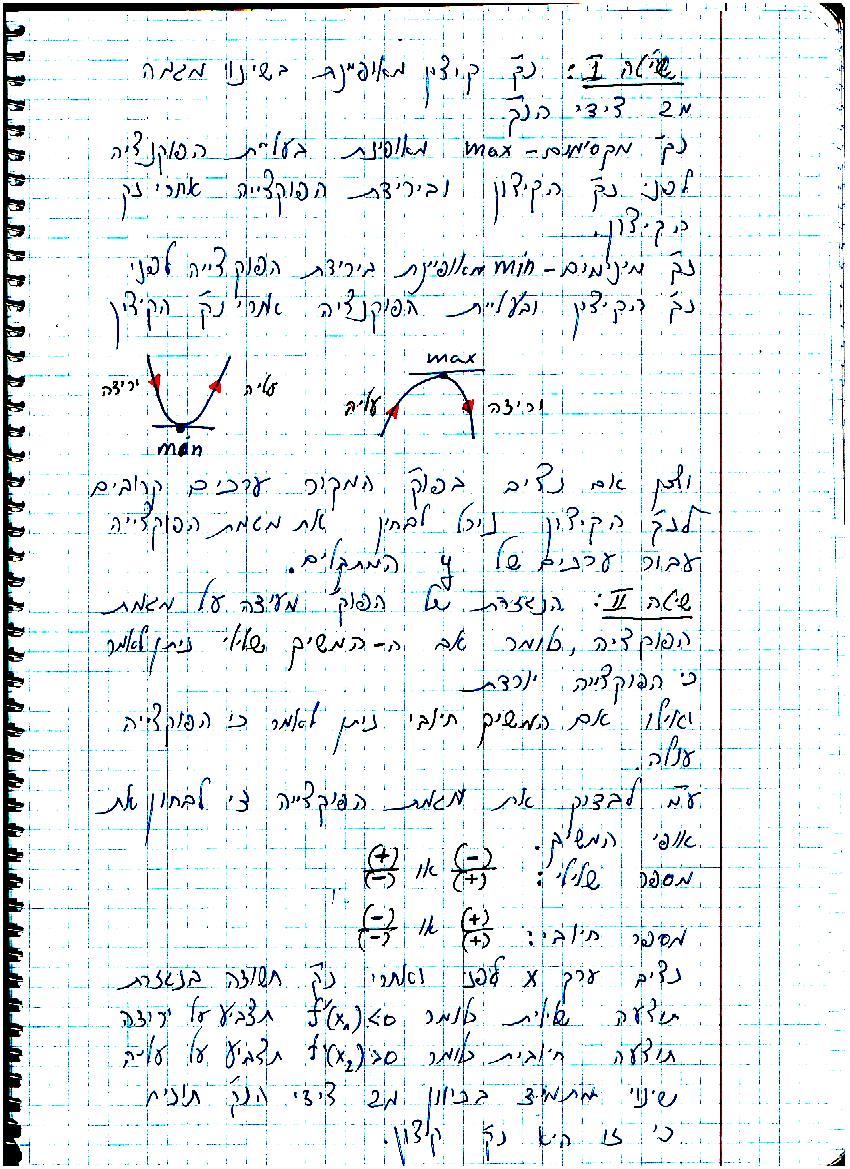 שיטה I: נק' קיצון מאופיינת בשינוי מגמה
מ2 צידי הנק'
נק' מקסימום - max מאופינת בעליית הפונקציה
לפני נק' הקיצון ובירידת הפונקצייה אחרי נק'
הקיצון.
נק' מינימום - min מאופיינת בירידת הפונקצייה לפני
נק' הקיצון ובעליית הפונקציה אחרי נק' הקיצון
max
ירידה עליה
עליה וירידה
min
אם נציב בפונק' המקור ערכים קרובים
לנק' הקיצון נוכל לבחון את מגמת הפונקצייה
עבור ערכים של y המתקבלים.
שיטה II: הנגזרת של הפונק' מעידה על מגמת
הפונקציה, כלומר אם ה-המשיק שלילי ניתן לאמר
כי הפונקצייה יורדת
ואילו אם המשיק חיובי ניתן לאמר כי הפונקצייה
עולה.
ע"מ לבדוק את מגמת הפונקצייה די לבחון את
אופי המשיק.
מספר שלילי: (-)/(+) או (+)/(-)
מספר חיובי: (+)/(+) או (-)/(-)
נציב ערך x לפני ואחרי נק' חשודה בנגזרת
תוצאה שלילית כלומר f'(x₁)<0 תצביע על ירידה
תוצאה חיובית כלומר f'(x₂)>0 תצביע על עלייה
שינוי מתמיד בכיוון מ2 צידי הנק' תוכיח
כי זו היא נק' קיצון.